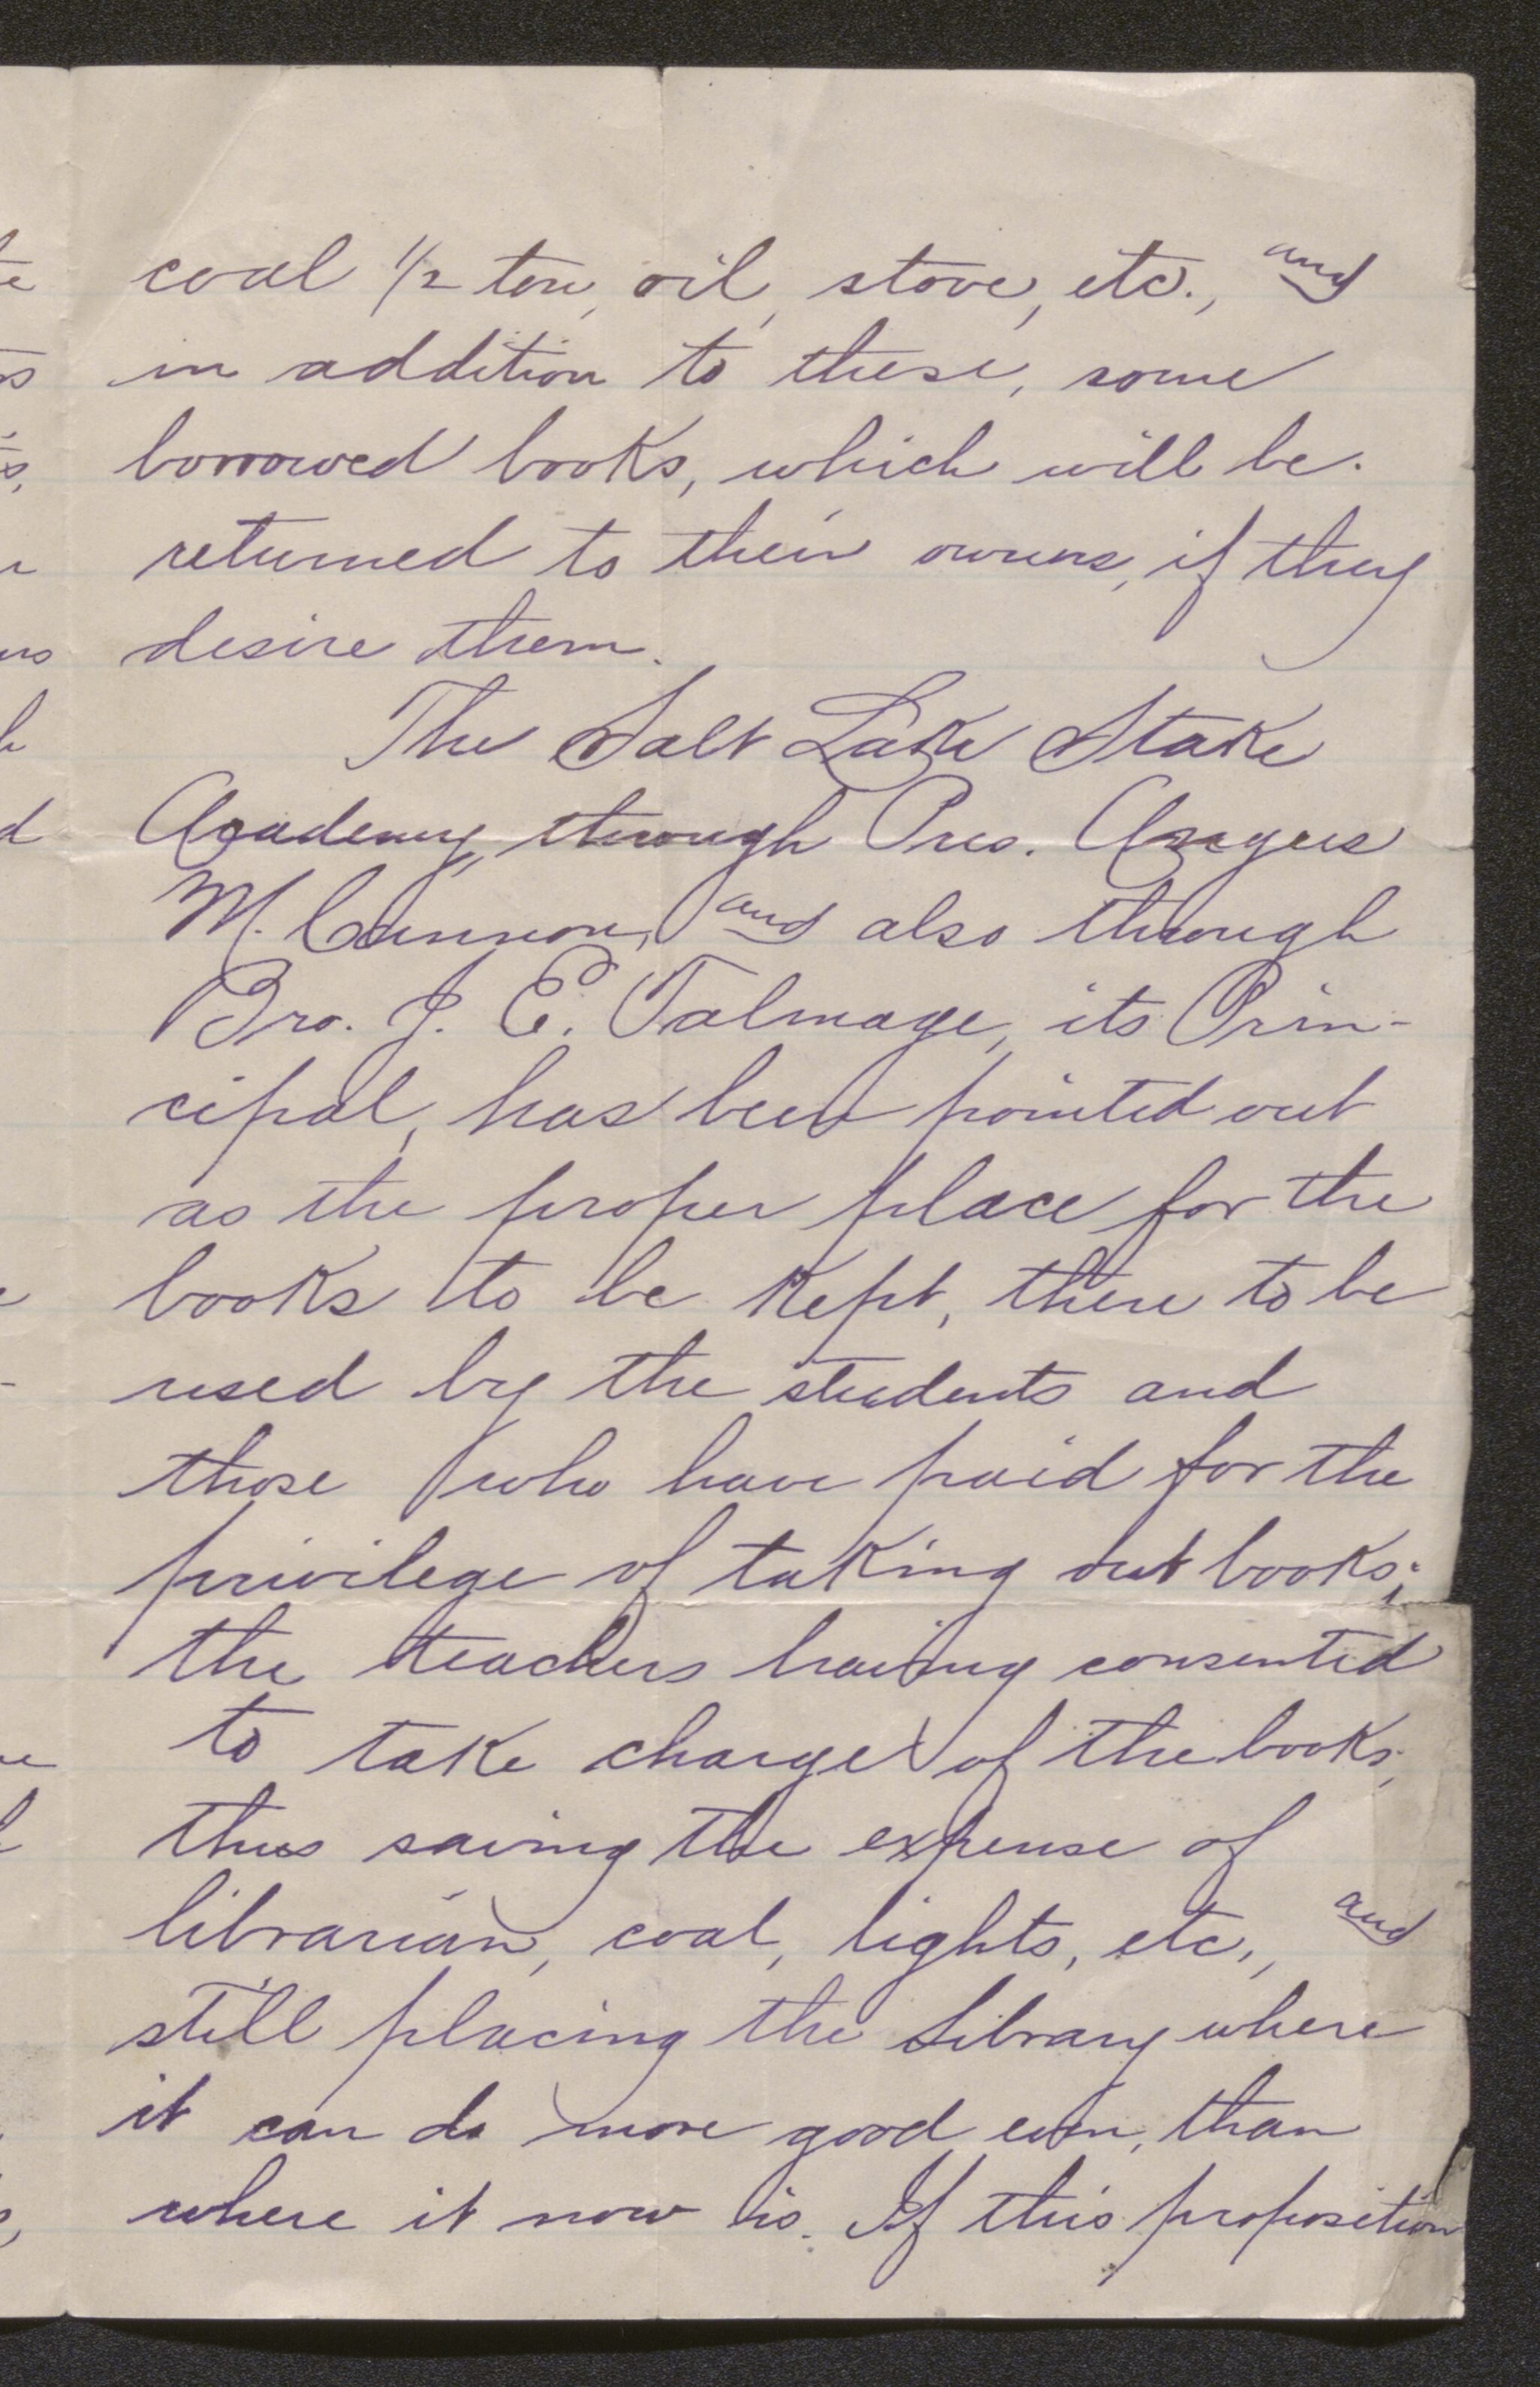 coal 1/2 ton, oil, stove, etc., and
in addition to these, some
borrowed books, which will be
returned to their owners, if they
desire them.
The Salt Lake Stake
Academy, through Pres. Angus
M. Cannon, and also through
Bro. J. E. Talmage, its Prin-
cipal, has been pointed out
as the proper place for the
books to be kept, there to be
used by the students and
those who have paid for the
privilege of taking out books;
the teachers having consented
to take charge of the books,
thus saving the expense of
librarian, coal, lights, etc., and
still placing the Library where
it can do more good even, than
where it now is. If this proposition